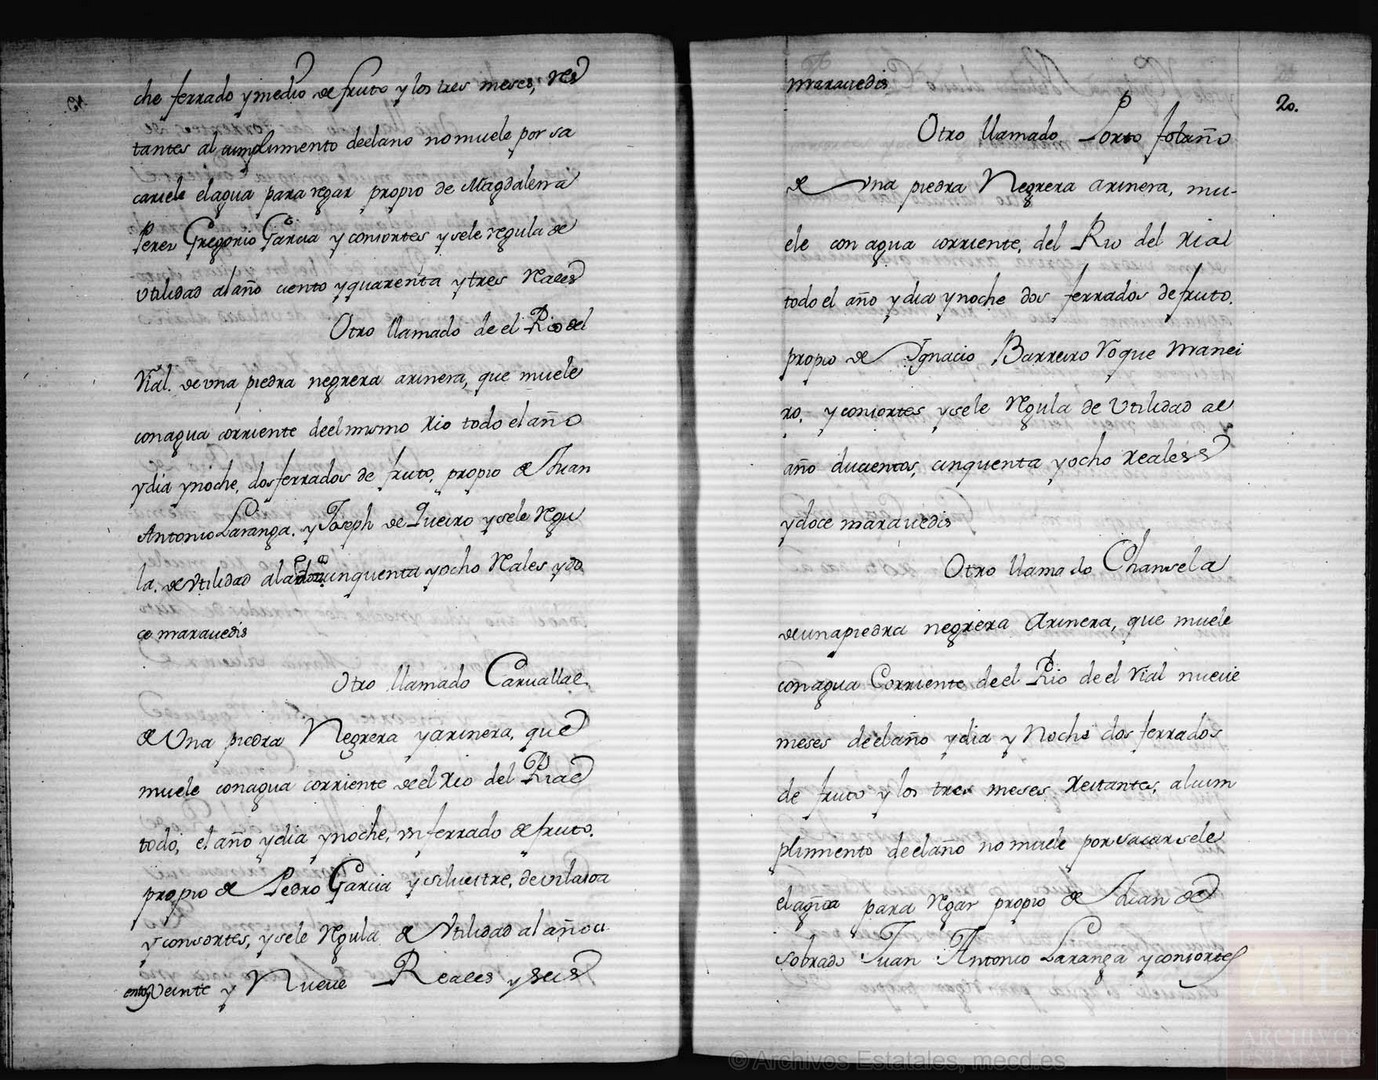 che ferrado y medio de fruto y los tres meses, res
tantes al cumplimento deel ano no muele por sa
carsele el agua para regar propio de Magdalena
Perez Gregorio Garcia y consortes y sele regula de
Utilidad al año ciento y quarenta y tres Reales
Otro llamado de el Rio del
Rial. de una piedra negrera arinera, que muele
con agua corriente deel mismo Rio todo el año
y dia y noche, dos ferrados de fruto, propio de Juan
Antonio Laranga. y Joseph de Queiro y sele Regu
la. de Utilidad al año cinquenta y ocho Reales y do
ce maravedis
Otro llamado Carvallal,
de Una piedra Negrera y arinera, que
muele con agua corriente de el Rio del Rial
todo, el año y dia y noche, un ferrado de fruto.
propio de Pedro Garcia y silvestre, de vilasoa
y consortes, y sele Regula de Utilidad al año ci
ento, Veinte y Nueve Reales y seis
maravedis
20.
Otro llamado Porto folaño
de Una piedra Negrera arinera, mu-
ele con agua corriente, del Rio del Rial
todo el año y dia y noche dos ferrados de fruto.
propio de Ignacio Barreiro Roque Manei
ro, y consortes y sele Regula de Utilidad al
año ducientos, cinquenta y ocho Reales
y doce maravedis
Otro llamado Chansela
de una piedra negrera Arinera, que muele
con agua Corriente de el Rio de el Rial nueve
meses deel año y dia y Noche dos ferrados
de fruto y los tres meses Restantes, al cum
plimento de el año no muele por sacarsele
el agua para Regar propio de Juan de
Sobrado Juan Antonio Laranga y consortes
© Archivos Estatales, mecd.es
ARCHIVOS
ESTATALES